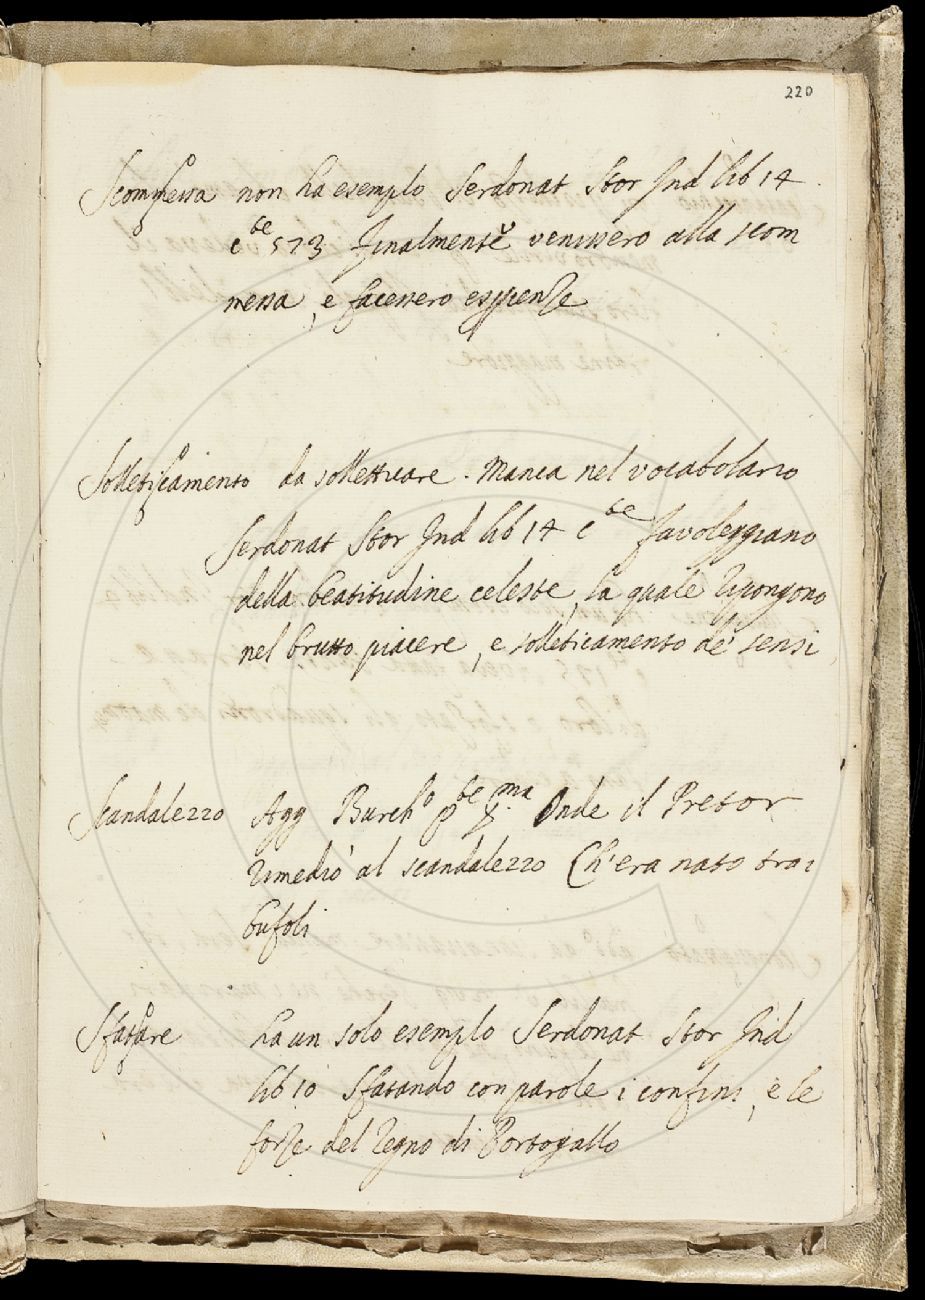 220
Scommessa non ha esemplo Serdonat Stor Ind lib 14
c.te 573 Finalmente venissero alla scom
messa, e facessero esperienze
Solleticamento da solletticare. Manca nel vocabolario
Serdonat Stor Ind lib 14 c.te favoleggiano
della beatitudine celeste, la quale ripongono
nel brutto piacere, e solleticamento de' sensi
Scandalezzo Agg Burch.o p.te p.ma Onde il Pretor
rimediò al scandalezzo Ch'era nato tra i
bufoli
Sfatare ha un solo esemplo Serdonat Stor Ind
lib 10 sfatando con parole i confini, e le
forze del regno di Portogallo